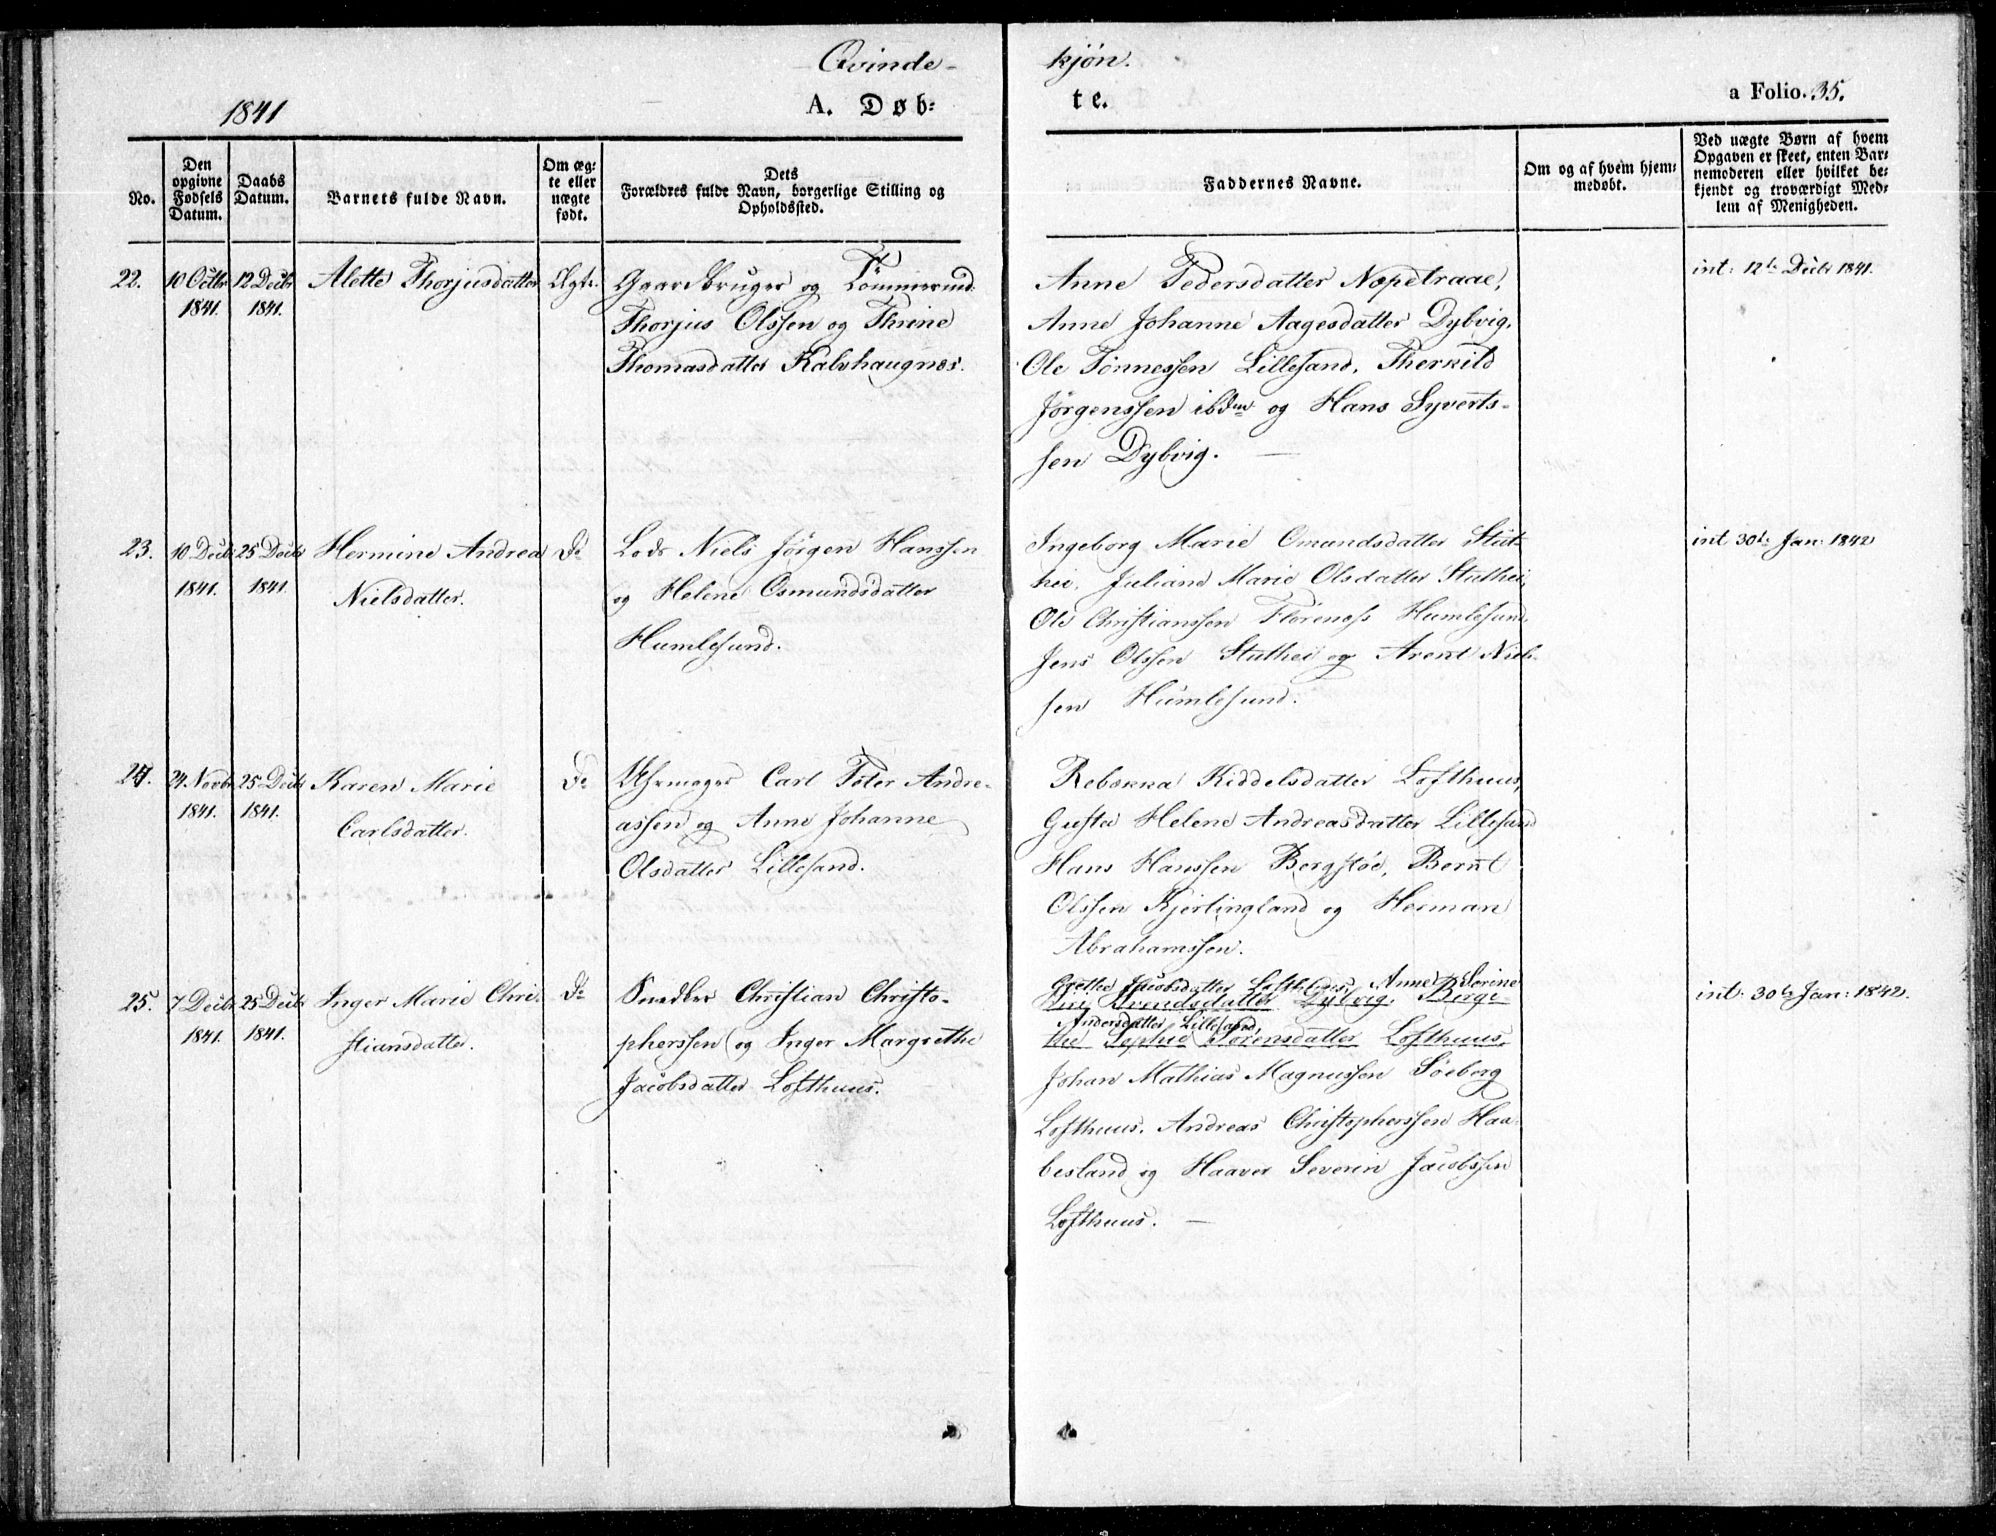 Qvinde-
kjøn.
1841
A. Døb-
te.
a Folio. 35.
No.
Den opgivne Fødsels Datum.
Daabs Datum.
Barnets fulde Navn.
Om æg-
te eller
nægte
født.
Dets
Forældres fulde Navn, borgerlige Stilling og
Opholdssted.
Faddernes Navne.
Om og af hvem hjem-
medøbt.
Ved uægte Børn af hvem
Opgaven er skeet, enten Bar-
nemoderen eller hvilket be-
kjendt og troværdigt Med-
lem af Menigheden.
22.
10 Octbr
1841.
12 Decbr
1841.
Alette Thorjusdatter
Ægte.
Gaardbruger og Tømmermd:
Thorjus Olssen og Thrine
Thomasdatter Kalvhaugnes.
Anne Pedersdatter Nopetraae,
Anne Johanne Aagesdatter Dybvig.
Ole Tønnessen Lillesand, Therkild
Jørgenssen ibdm og Hans Syverts-
sen Dybvig.
int: 12te Decbr 1841.
23.
10 Decbr
1841.
25 Decbr
1841
Hermine Andrea
Nielsdatter.
Do
Lods Niels Jørgen Hanssen
og Helene Osmundsdatter
Humlesund.
Ingeborg Marie Omundsdatter Stut-
hei. Juliane Marie Olsdatter Stuthei,
Ole Christianssen Flørenæss Humlesund,
Jens Olssen Stuthei og Arent Niels-
sen Humlesund.
int 30te Jan: 1842
24.
24 Novbr
1841.
25 Decbr
1841.
Karen Marie
Carlsdatter.
Do
Uhrmager Carl Peter Andre-
assen og Anne Johanne
Olsdatter Lillesand.
Rebekka Kiddelsdatter Lofthuus,
Gusta Helene Andreasdatter Lillesand
Hans Hanssen Bergstøe, Bernt
Olssen Kjerlingland og Herman
Abrahamssen.
25.
7 Decbr
1841.
25 Decbr
1841.
Inger Marie Chri-
stiansdatter.
Do
Snedker Christian Christo-
pherssen og Inger Margrethe
Jacobsdatter Lofthuus.
Grethe Jacobsdatter Lofthuus, Anne Serine
Arendsdatter Dybvig, Birge-
Andersdatter Lillesand,
the Sophie Sørensdatter Lofthuus,
Johan Mathias Magnussen Søeberg
Lofthuus. Andreas Christopherssen Haa-
besland og Haaver Severin Jacobssen
Lofthuus.
int: 30te Jan: 1842.